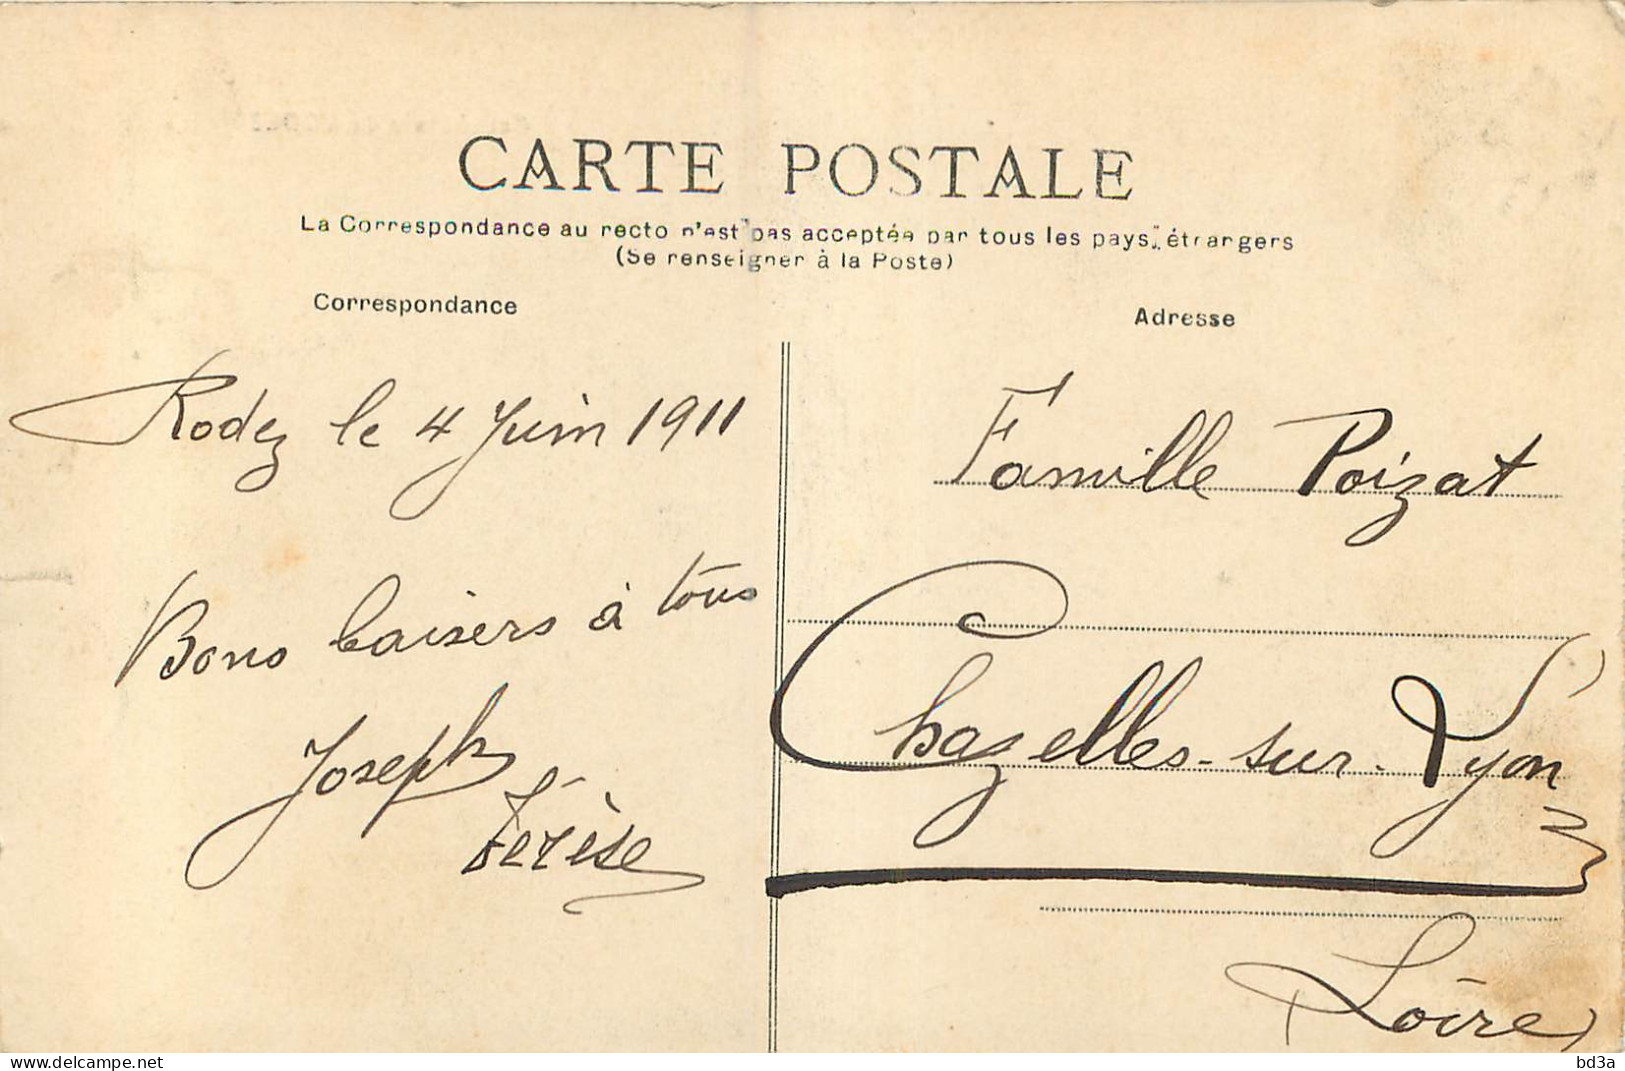 CARTE POSTALE
La Correspondance au recto n'est pas acceptée par tous les pays étrangers
(Se renseigner à la Poste)
Correspondance
Rodez le 4 Juin 1911
Bons baisers à tous
Joseph
Térèse
Adresse
Famille Poizat
Chazelles-sur-Lyon
Loire
bd3a